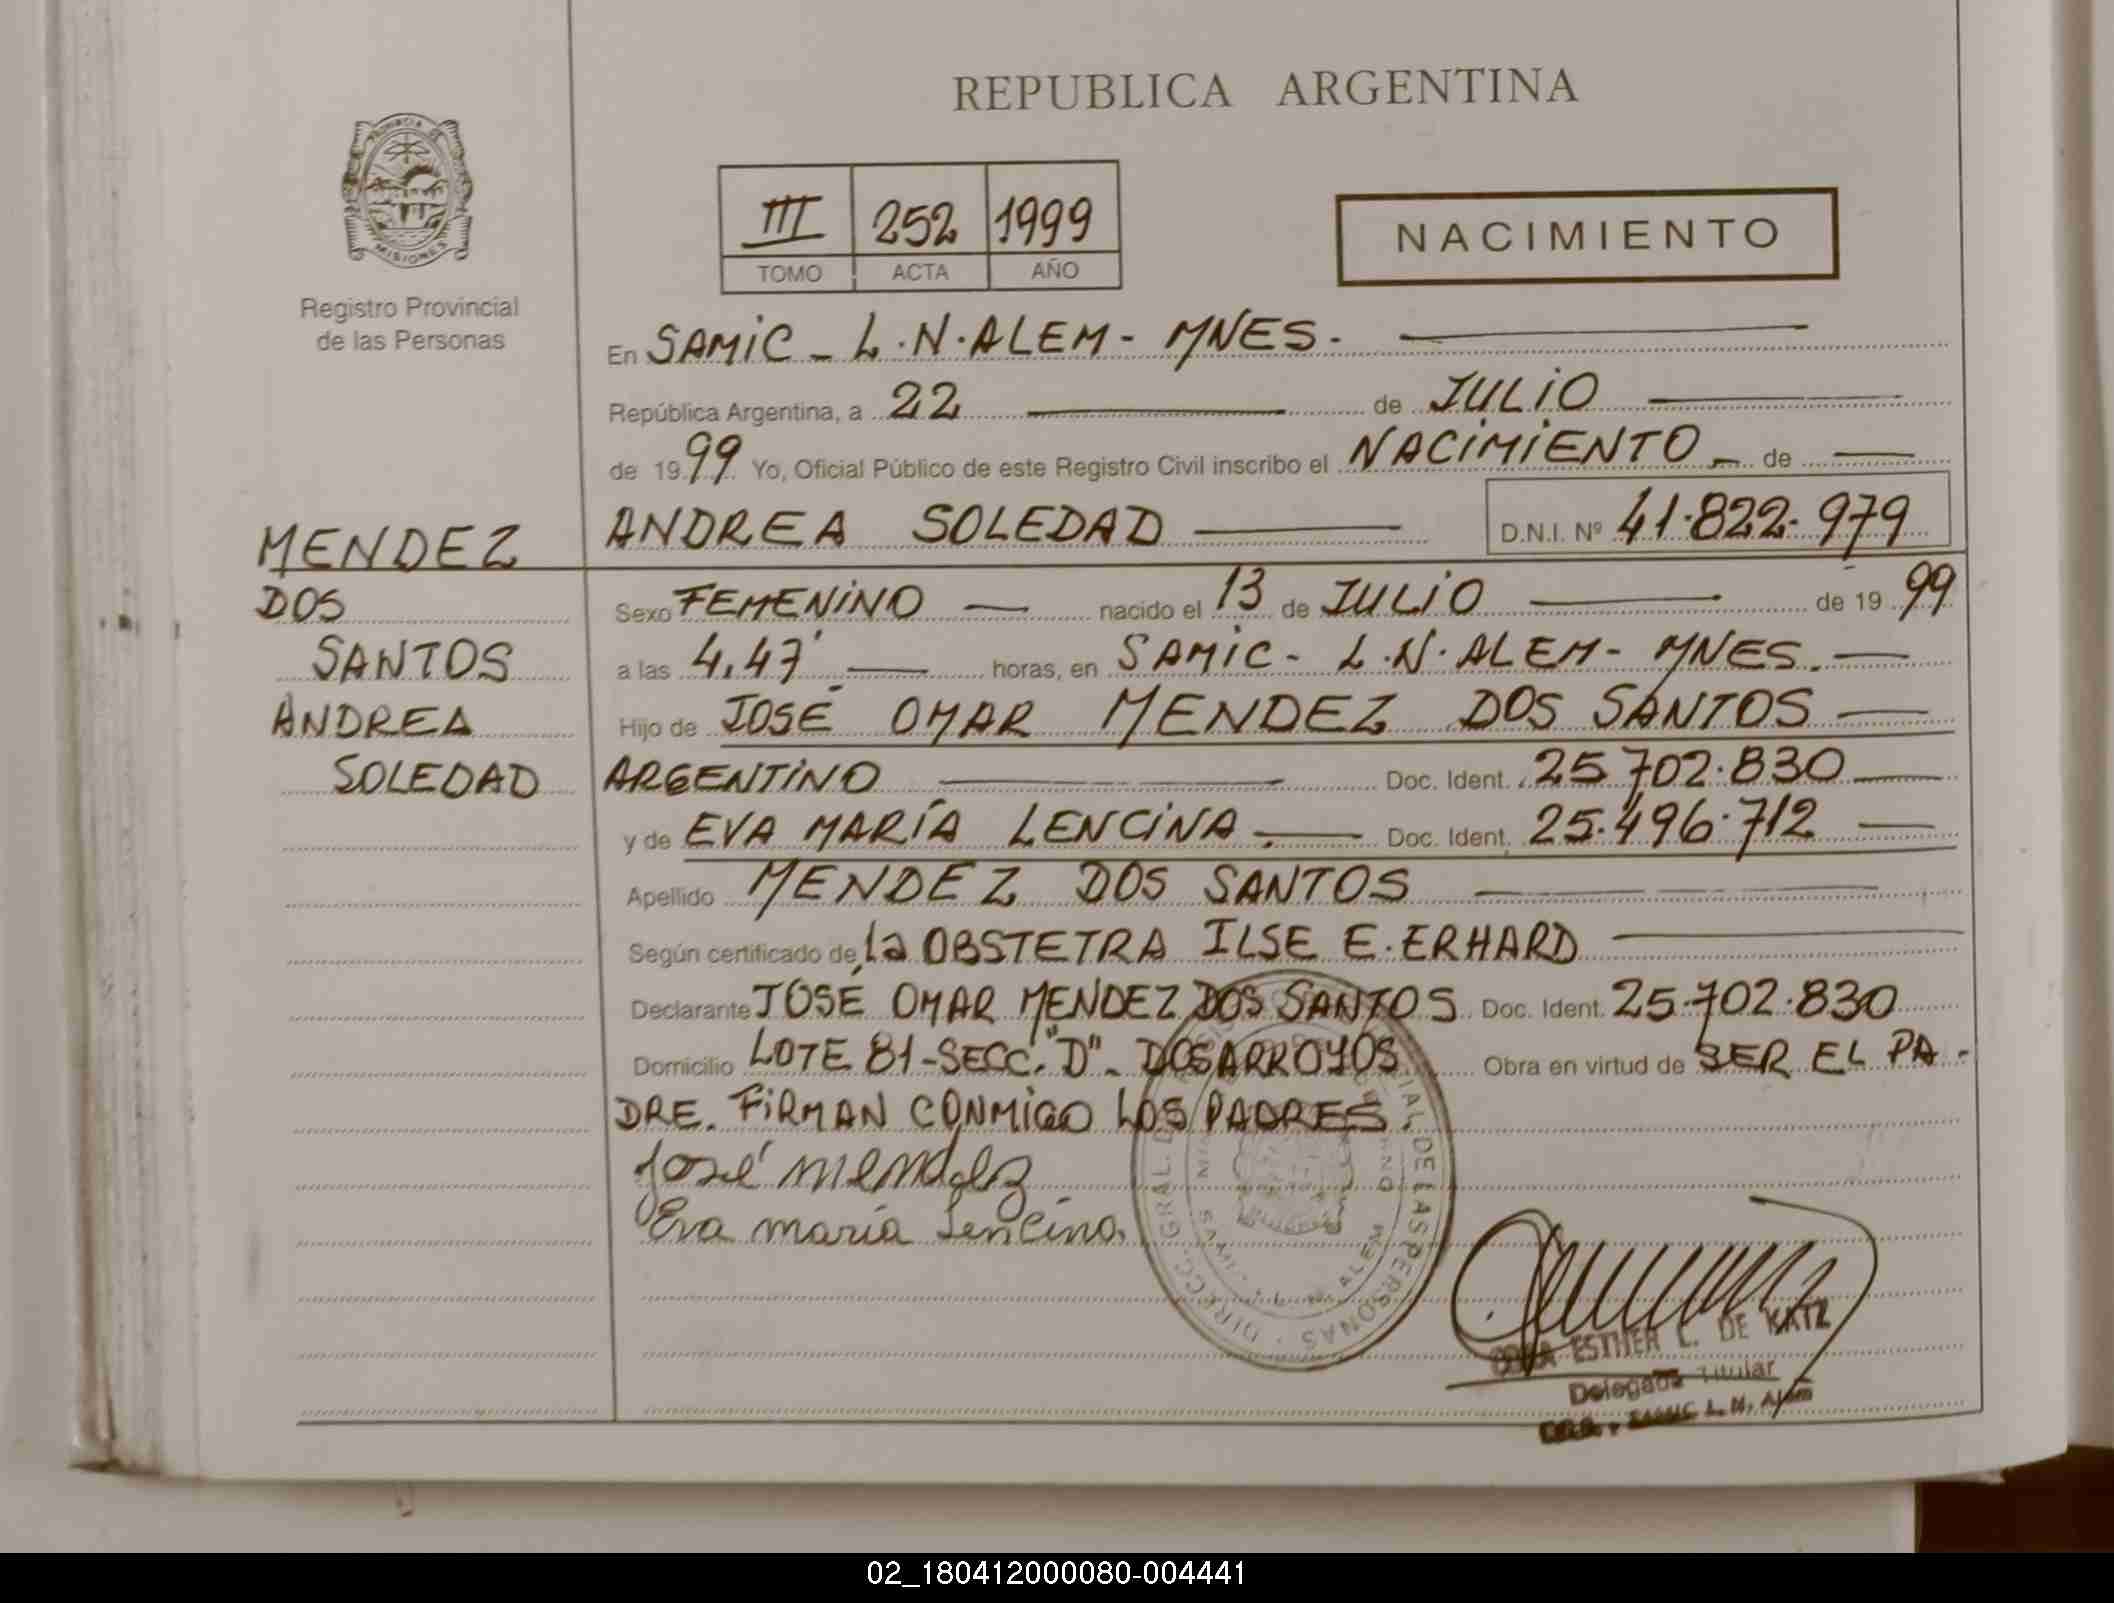 REPUBLICA ARGENTINA
PROVINCIA DE
MISIONES
Registro Provincial
de las Personas
III 252 1999
TOMO ACTA AÑO
NACIMIENTO
En SAMIC - L.N.ALEM - MNES.
República Argentina, a 22 de JULIO
de 1999 Yo, Oficial Público de este Registro Civil inscribo el NACIMIENTO de
MENDEZ ANDREA SOLEDAD D.N.I. Nº 41.822.979
DOS Sexo FEMENINO nacido el 13 de JULIO de 1999
SANTOS a las 4,47' horas, en SAMIC - L.N.ALEM - MNES.
ANDREA Hijo de JOSÉ OMAR MENDEZ DOS SANTOS
SOLEDAD ARGENTINO Doc. Ident. 25.702.830
y de EVA MARÍA LENCINA. Doc. Ident. 25.496.712
Apellido MENDEZ DOS SANTOS
Según certificado de la OBSTETRA ILSE E. ERHARD
Declarante JOSÉ OMAR MENDEZ DOS SANTOS Doc. Ident. 25.702.830
Domicilio LOTE 81-SECC."D"- DOS ARROYOS Obra en virtud de SER EL PA-
DRE. FIRMAN CONMIGO LOS PADRES.
José Mendez
Eva maria Lencina
DE LAS PERSONAS
DIRECC. GRAL.
L. N. ALEM
ESTHER L. DE KATZ
Delegada Titular
L. N. Alem
02_180412000080-004441